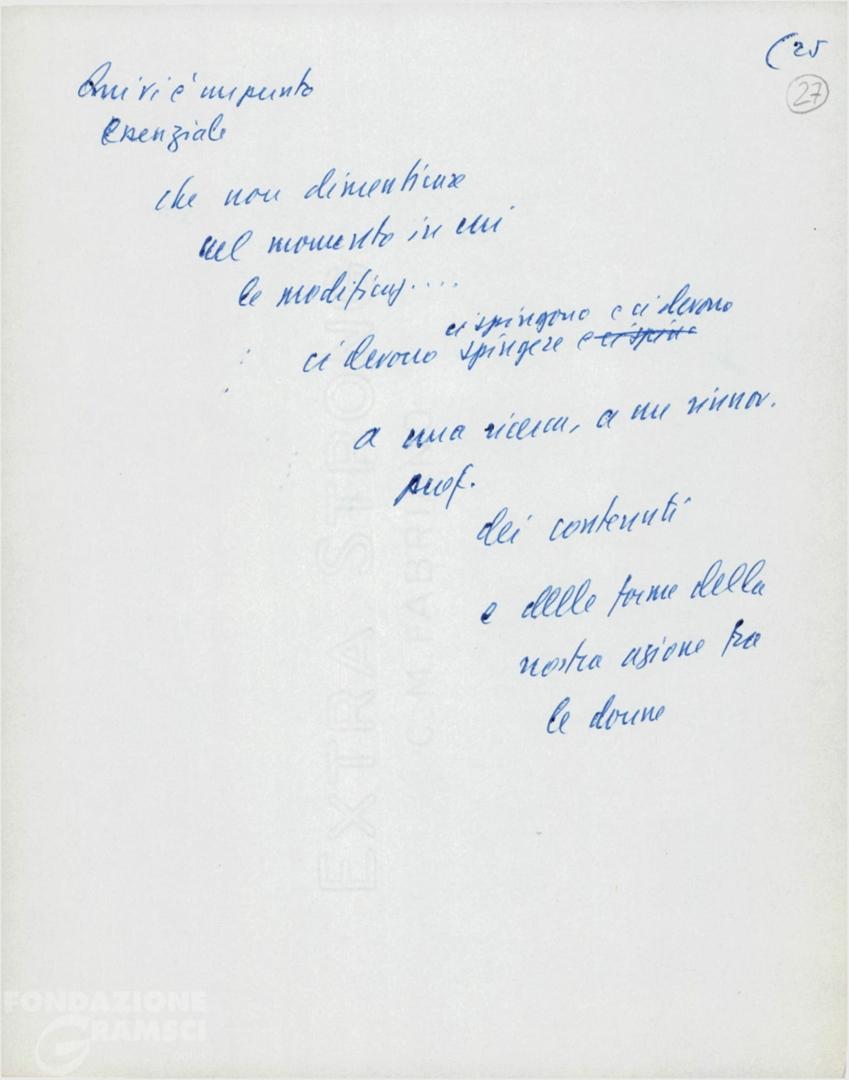 (25
27
Qui vi è un punto
essenziale
che non dimenticare
nel momento in cui
le modificaz....
ci spingono e ci devono
ci devono spingere e ci spin
a una ricerca, a un rinnov.
prof.
dei contenuti
e delle forme della
nostra azione fra
le donne
EXTRA STRONG
C.M.FABRIANO
FONDAZIONE
GRAMSCI